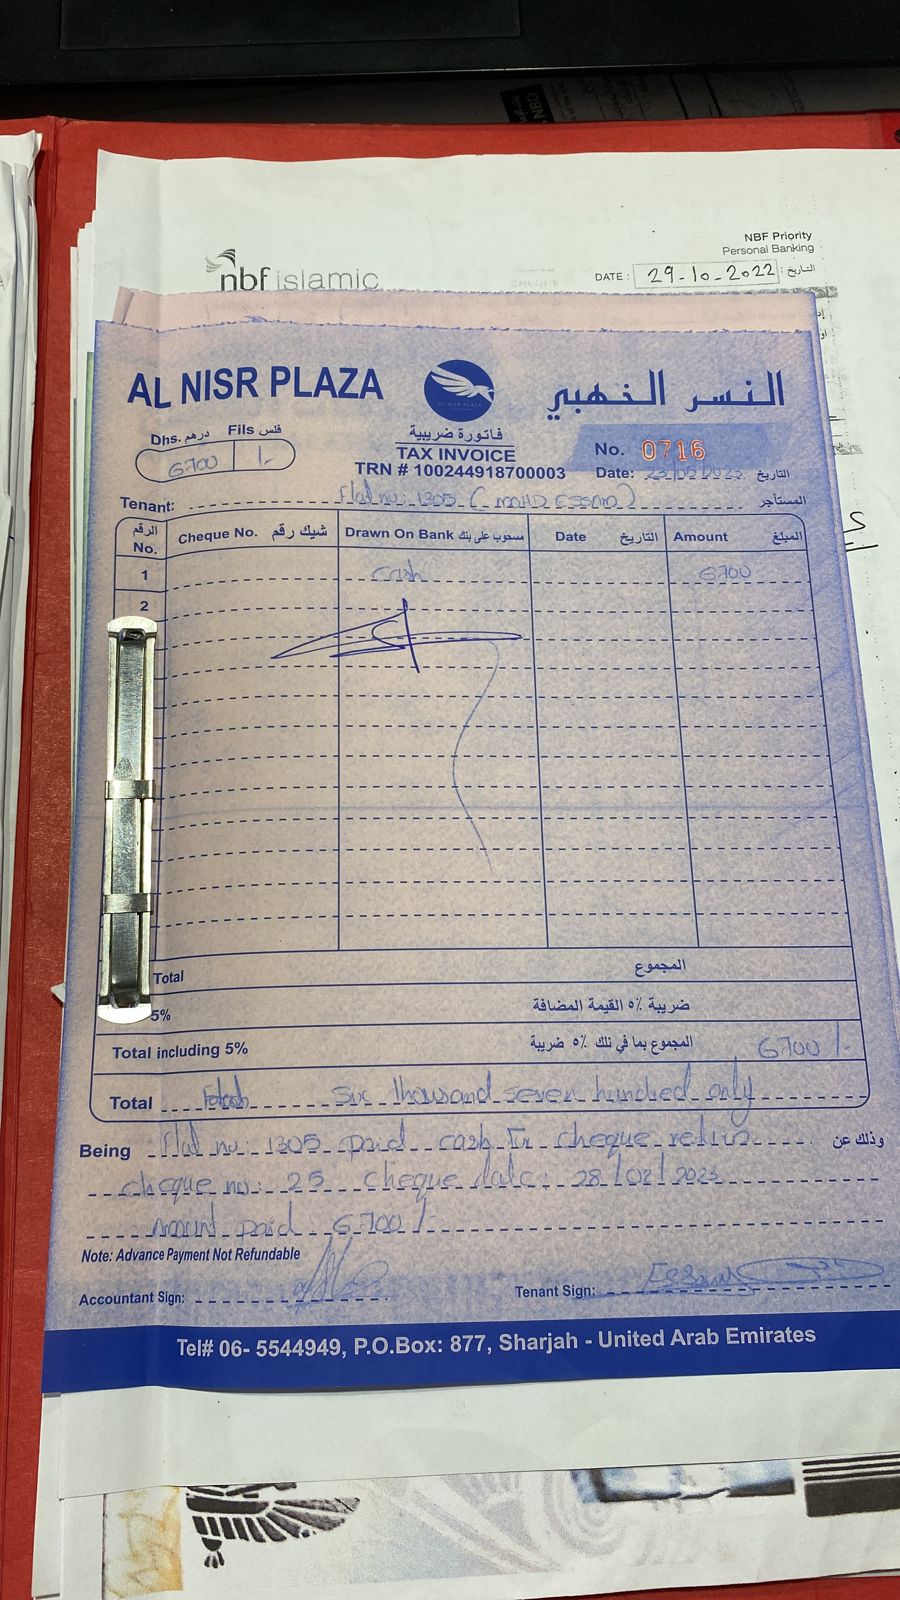 NBF Priority
Personal Banking
nbf islamic
DATE : 29-10-2022 التاريخ :
AL NISR PLAZA
AL NISR PLAZA
النسر الذهبي
Dhs. درهم Fils فلس
6700 /-
فاتورة ضريبية
TAX INVOICE
TRN # 100244918700003
No. 0716
Date: التاريخ
Tenant: Flat no: 1305 (MOHD ESSAM) المستأجر
الرقم No. Cheque No. شيك رقم Drawn On Bank مسحوب على بنك Date التاريخ Amount المبلغ
1 Cash 6700
2
Total المجموع
5% ضريبة ٥% القيمة المضافة
Total including 5% المجموع بما في ذلك ٥% ضريبة 6700 /-
Total Six thousand seven hundred only
Being Flat no: 1305 paid cash for cheque return وذلك عن
cheque no: 25 cheque date: 28/02/2023
Amount paid: 6700 /-
Note: Advance Payment Not Refundable
Accountant Sign: Tenant Sign: Essam
Tel# 06- 5544949, P.O.Box: 877, Sharjah - United Arab Emirates